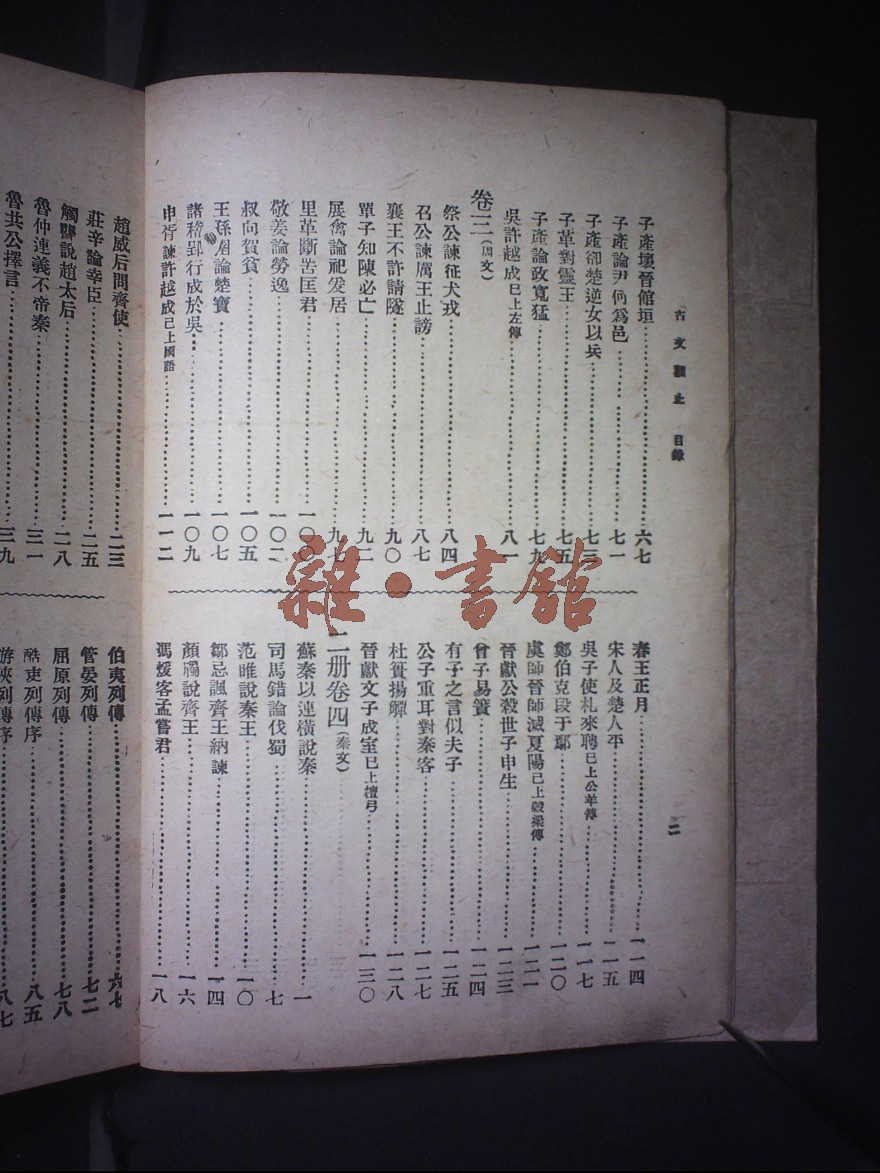 古文觀止 目錄
子產壞晉館垣 六七
子產論尹何爲邑 七一
子產卻楚逆女以兵 七三
子革對靈王 七五
子產論政寬猛 七九
吳許越成 已上左傳 八一
卷三(周文)
祭公諫征犬戎 八四
召公諫厲王止謗 八七
襄王不許請隧 九〇
單子知陳必亡 九二
展禽論祀爰居 九七
里革斷罟匡君 一〇〇
敬姜論勞逸 一〇二
叔向賀貧 一〇五
王孫圉論楚寶 一〇七
諸稽郢行成於吳 一〇九
申胥諫許越成 已上國語 一一二
春王正月 一一四
宋人及楚人平 一一五
吳子使札來聘 已上公羊傳 一一七
鄭伯克段于鄢 一二〇
虞師晉師滅夏陽 已上穀梁傳 一二一
晉獻公殺世子申生 一二三
曾子易簀 一二四
有子之言似夫子 一二五
公子重耳對秦客 一二七
杜蕢揚觶 一二八
晉獻文子成室 已上檀弓 一三〇
二册卷四(秦文)
蘇秦以連橫說秦 一
司馬錯論伐蜀 七
范雎說秦王 一〇
鄒忌諷齊王納諫 一四
顏斶說齊王 一六
馮煖客孟嘗君 一八
二
趙威后問齊使 二三
莊辛論幸臣 二五
觸讋說趙太后 二八
魯仲連義不帝秦 三一
魯共公擇言 三九
伯夷列傳 六七
管晏列傳 七二
屈原列傳 七八
酷吏列傳序 八五
游俠列傳序 八七
雜·書舘